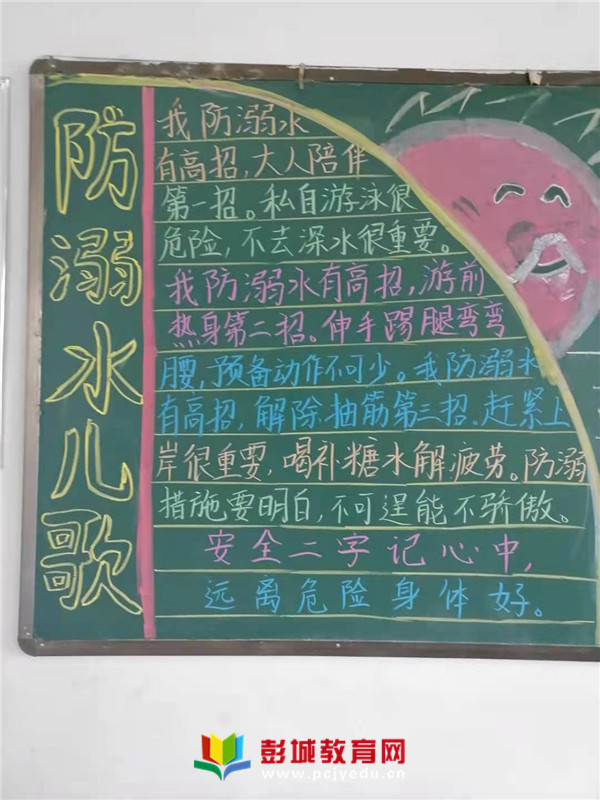 防溺水儿歌
我防溺水
有高招,大人陪伴
第一招。私自游泳很
危险,不去深水很重要。
我防溺水有高招,游前
热身第二招。伸手踢腿弯弯
腰,预备动作不可少。我防溺水
有高招,解除抽筋第三招.赶紧上
岸很重要,喝补糖水解疲劳。防溺
措施要明白,不可逞能不骄傲。
安全二字记心中,
远离危险身体好。
彭城教育网
www.pcjyedu.cn